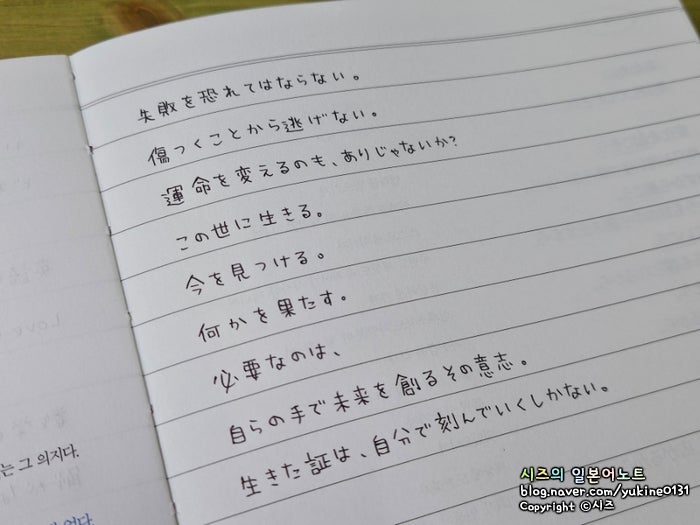 失敗を恐れてはならない。
傷つくことから逃げない。
運命を変えるのも、ありじゃないか?
この世に生きる。
今を見つける。
何かを果たす。
必要なのは、
自らの手で未来を創るその意志。
生きた証は、自分で刻んでいくしかない。
는 그 의지다.
시즈의 일본어노트
blog.naver.com/yukine0131
Copyright ©시즈